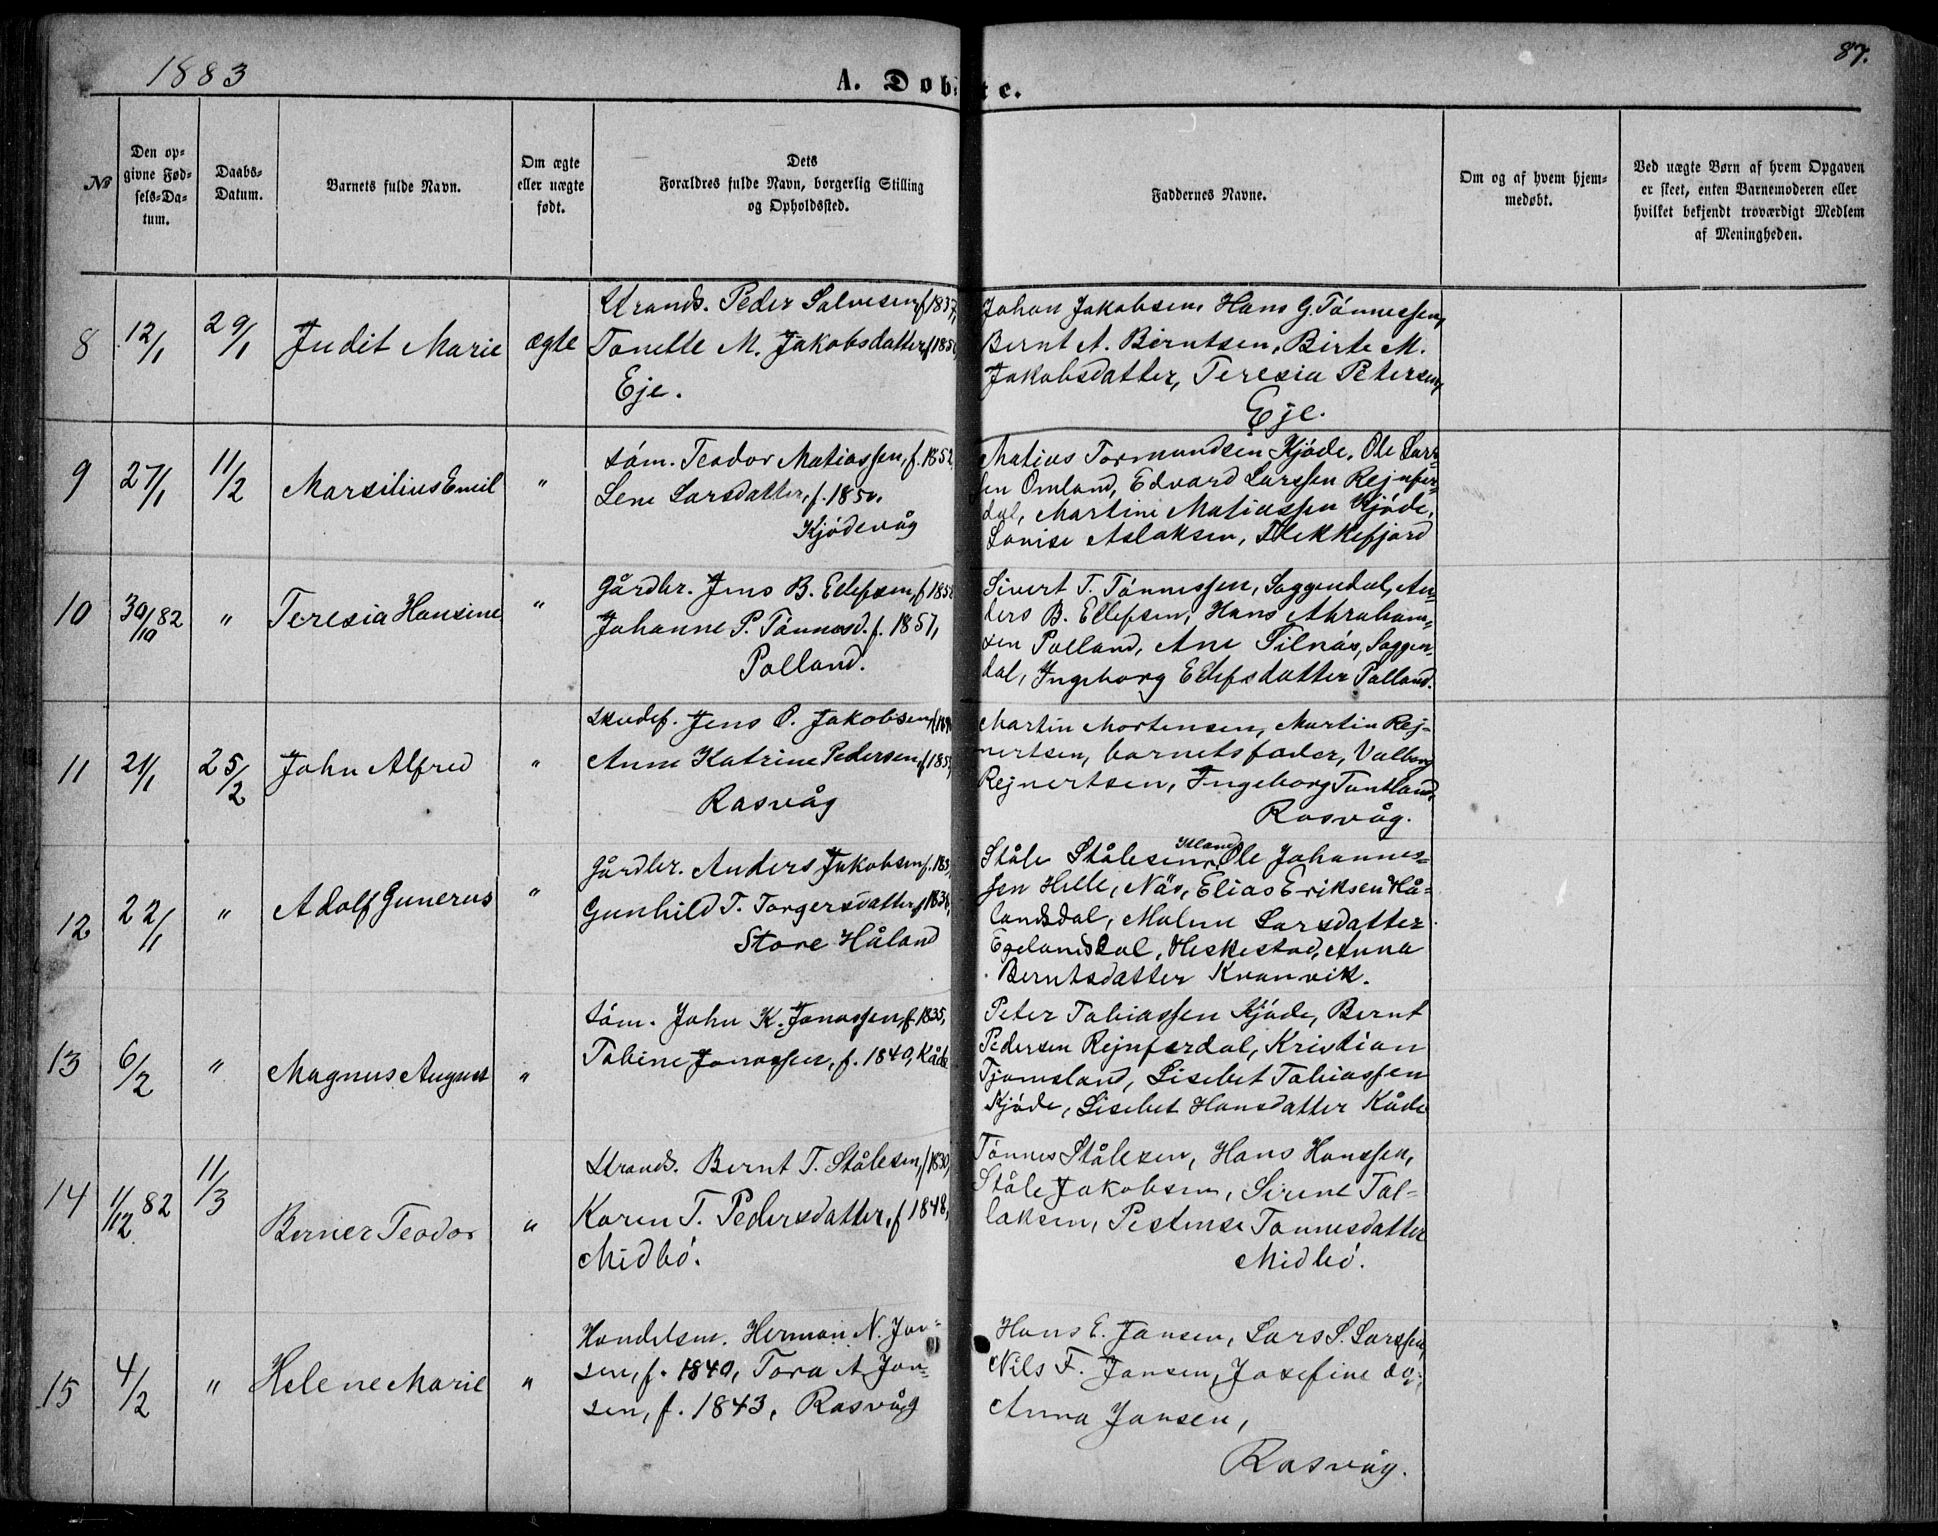 1883
A. Dob
te.
87.
No
Den op-
givne Fød-
sels-Da-
tum.
Daabs-
Datum.
Barnets fulde Navn.
Om ægte
eller uægte
født.
Dets
Forældres fulde Navn, borgerlig Stilling
og Opholdssted.
Faddernes Navne.
Om og af hvem hjem-
medøbt.
Ved uægte Børn af hvem Opgaven
er skeet, enten Barnemoderen eller
hvilket bekjendt troværdigt Medlem
af Menigheden.
8 12/1 29/1 Judit Marie ægte
Strands. Peder Salvesen, f 1837,
Tonette M. Jakobsdatter, f 185
Eje.
Johan Jakobsen, Hans G. Tönnessen,
Bernt A. Berntsen, Birte M.
Jakobsdatter, Teresia Petersen,
Eje.
9 27/1 11/2 Marsilius Emil "
Söm. Teodor Matiassen, f. 1852,
Lene Larsdatter, f. 1850.
Kjödevåg
Matias Tormundsen Kjöde, Ole Lar-
sen Omland, Edvard Larssen Rejnfer-
dal, Martine Matiassen Kjöde,
Lovise Aslaksen, Flekkefjord
10 30/10 82 " Teresia Hansine "
Gårdbr. Jens B. Ellefsen, f 185
Johanne S. Tönnesd. f. 1857,
Polland.
Sivert T. Tönnessen, Saggendal, An-
ders B. Ellefsen, Hans Abraham-
sen Polland, Ane Silnäs, Saggen-
dal, Ingeborg Ellefsdatter Polland.
11 21/1 25/2 John Alfred "
Skudef. Jens O. Jakobsen, f 18
Anne Katrine Pedersen, f 185
Rasvåg
Martin Mortensen, Martin Rej-
nertsen, barnets fader, Valborg
Rejnertsen, Ingeborg Tuntland,
Rasvåg.
12 22/1 " Adolf Gunerus "
Gårdbr. Anders Jakobsen, f. 183
Gunhild T. Torgersdatter, f 183
Store Håland
Ståle Stålesen, Ole Johannes-
sen Helle, Näs, Elias Eriksen Hå-
landsdal, Malene Larsdatter
Egelandsdal, Heskestad, Anna
Berntsdatter Kvanvik.
13 6/2 " Magnus August "
Söm. John K. Jonassen, f. 1835,
Tobine Jonassen, f. 1840, Kåde
Peter Tobiassen Kjöde, Bernt
Pedersen Rejnferdal, Kristian
Tjomsland, Lisebet Tobiassen
Kjöde, Lisebet Hansdatter Kåde
14 1/12 82 11/3 Berner Teodor "
Strands. Bernt T. Stålesen, f 1830,
Karen T. Pedersdatter, f 1848,
Midbö.
Tönnes Stålesen, Hans Hanssen,
Ståle Jakobsen, Sirene Tal-
laksen, Pestense Tönnesdatter
Midbö.
15 4/2 " Helene Marie "
Handelsm. Herman N. Jan-
sen, f. 1840, Tora A. Jan-
sen, f. 1843, Rasvåg
Hans E. Jansen, Lars S. Larssen,
Nils F. Jansen, Josefine do,
Anna Jansen,
Rasvåg.